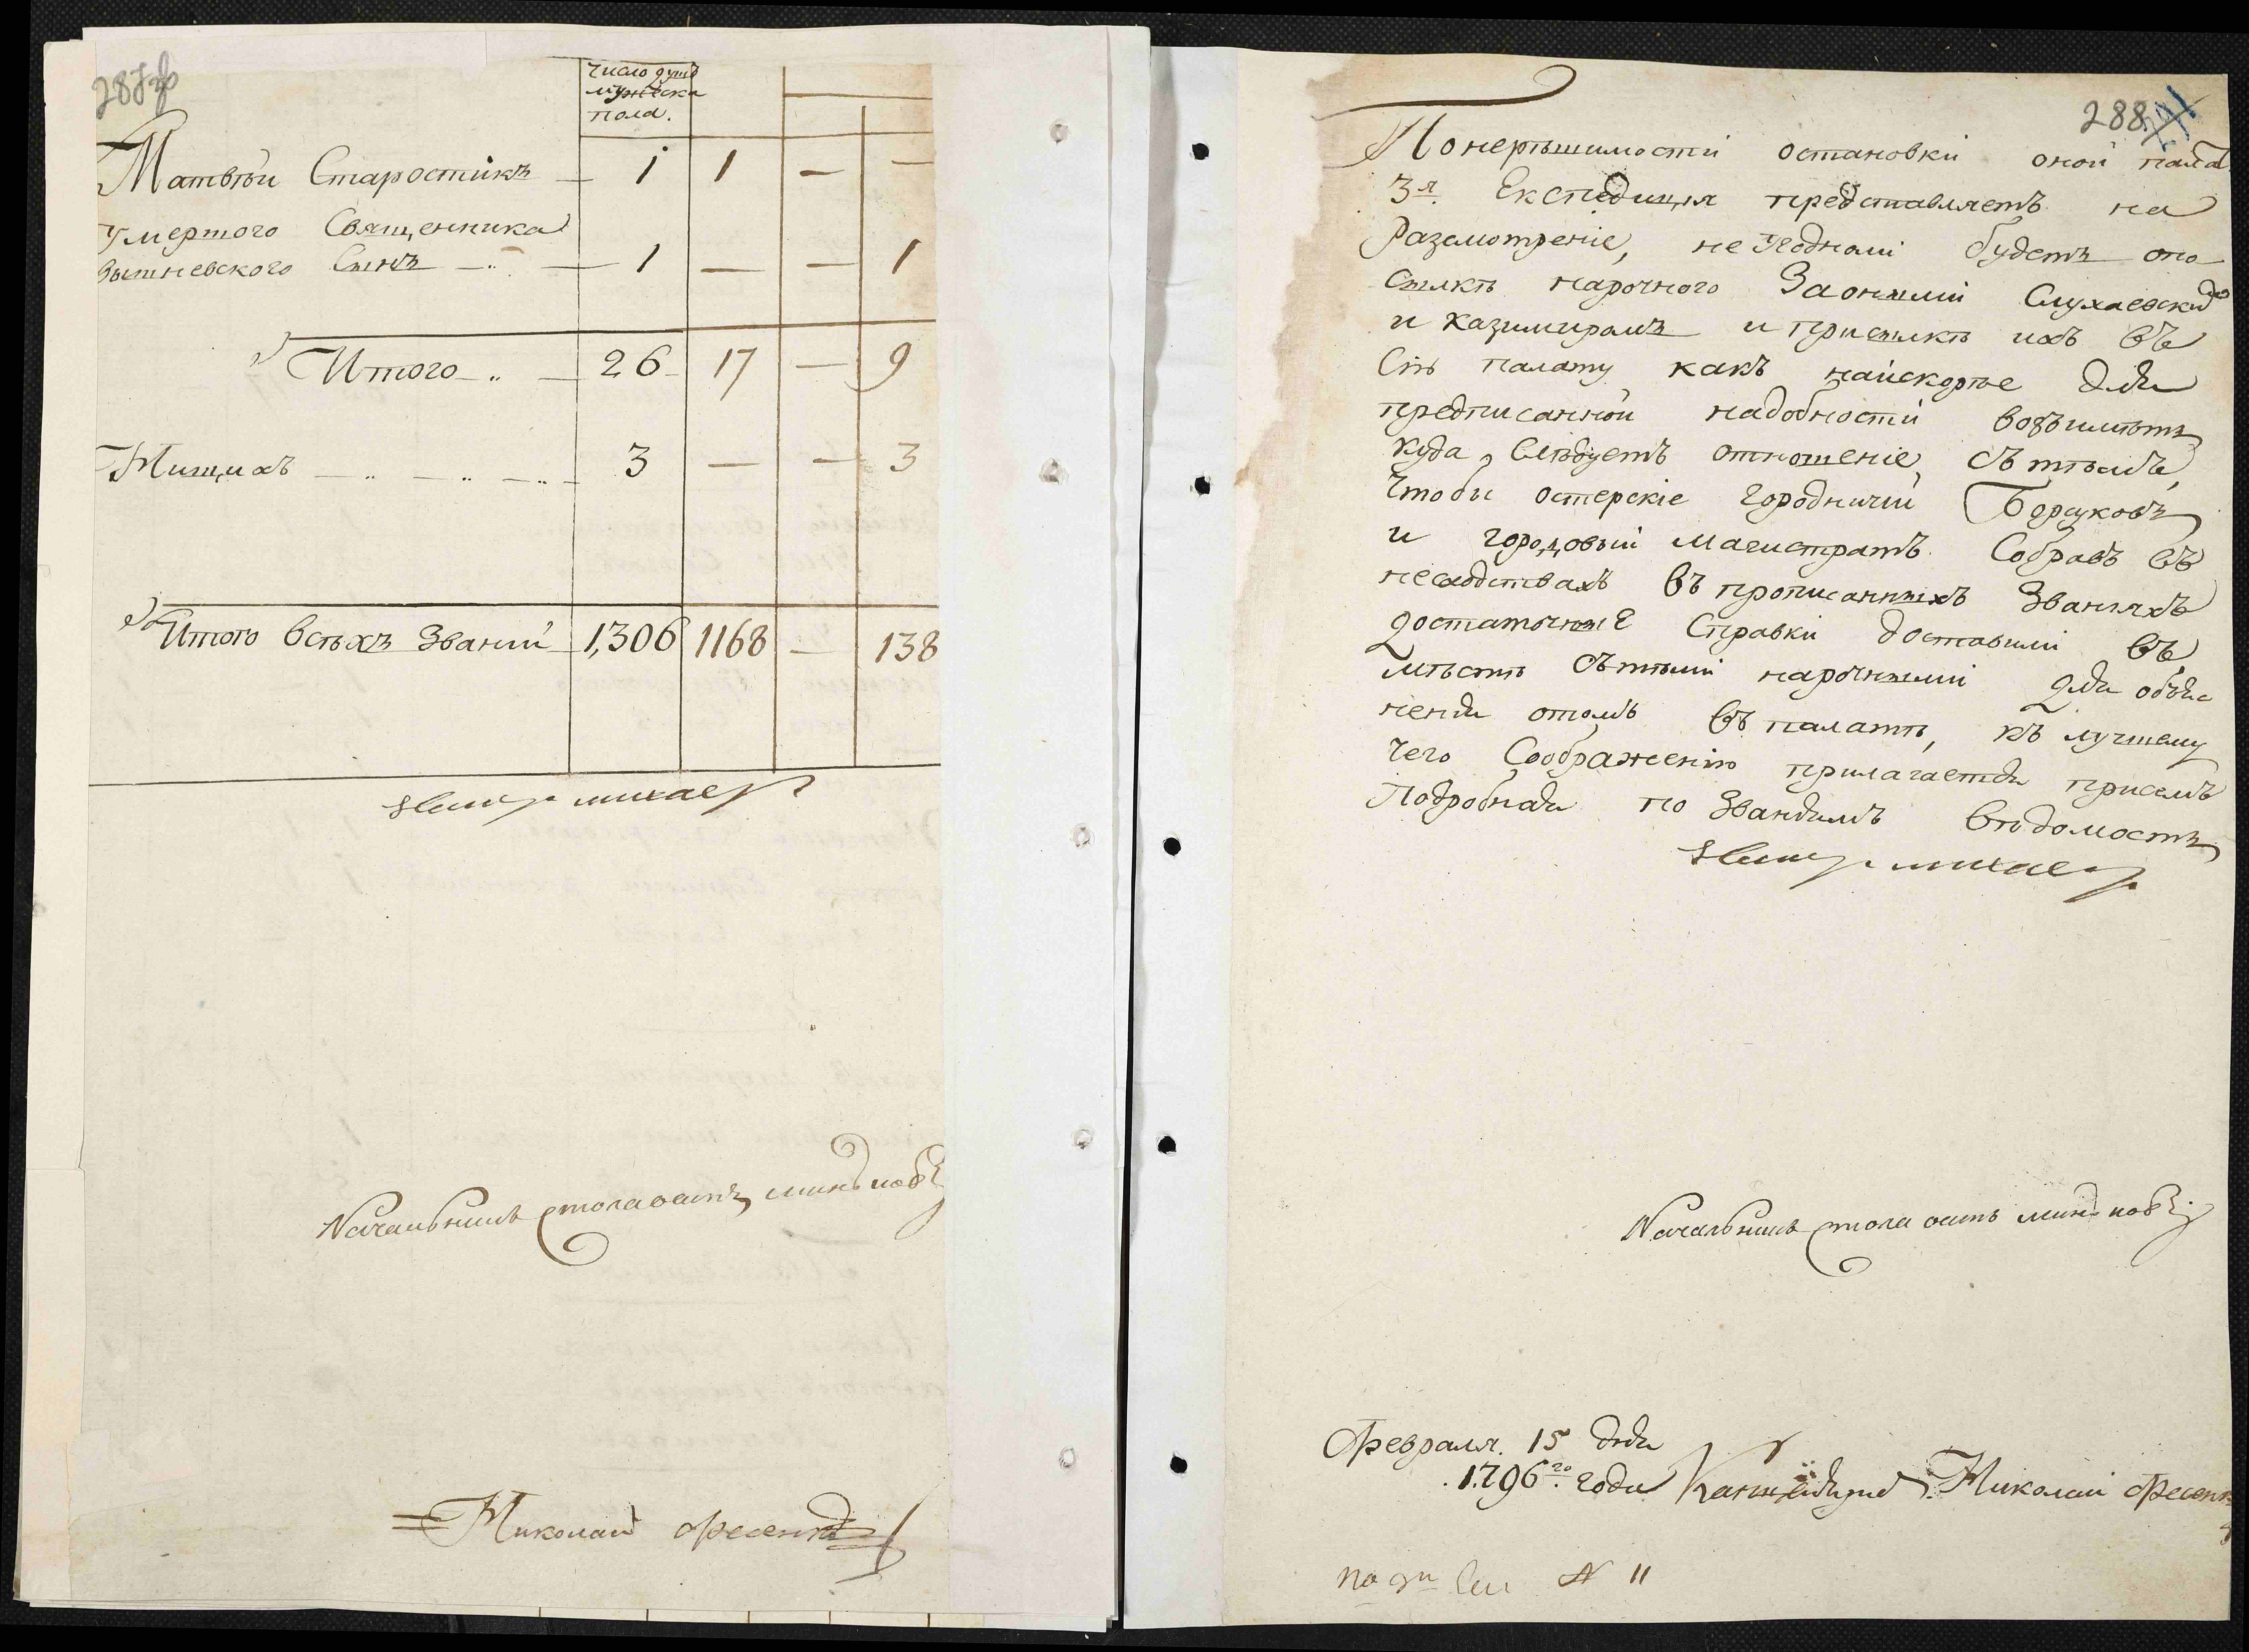 287
число душъ
мужеска
пола.
Матвѣй Старостикъ — 1 1 — —
умершого Священника
вышневского Сынъ — 1 — — 1
Итого — 26 17 — 9
Нищихъ — 3 — — 3
Итого всѣхъ Званий 1,306 1168 — 138
Начальникъ стола
Николай Фесенко
288
остановки оной
3я. Експедиция представляетъ на
Разсмотреніе, не угодноли будетъ опо
сылкѣ нарочного Заоными Слухаевский
и казимиромъ и присылкѣ ихъ въ
Сію палату какъ найскорѣе для
предписанной надобности возъимѣть
куда Слѣдуетъ отношеніе, съ тѣмъ,
Чтобы остерскіе городничий Борсуковъ
и городовый магистратъ Собравъ въ
въ прописанныхъ Званіяхъ
достаточные Справки доставили въ
мѣстѣ сътѣми нарочными для объяс
ненія отомъ въ палатѣ, къ лучшему
чего Соображенію прилагается присемъ
Подробная по Званіямъ вѣдомость
Начальникъ стола
Февраля. 15 дня
1796го. года Николай Фесенк
N 11